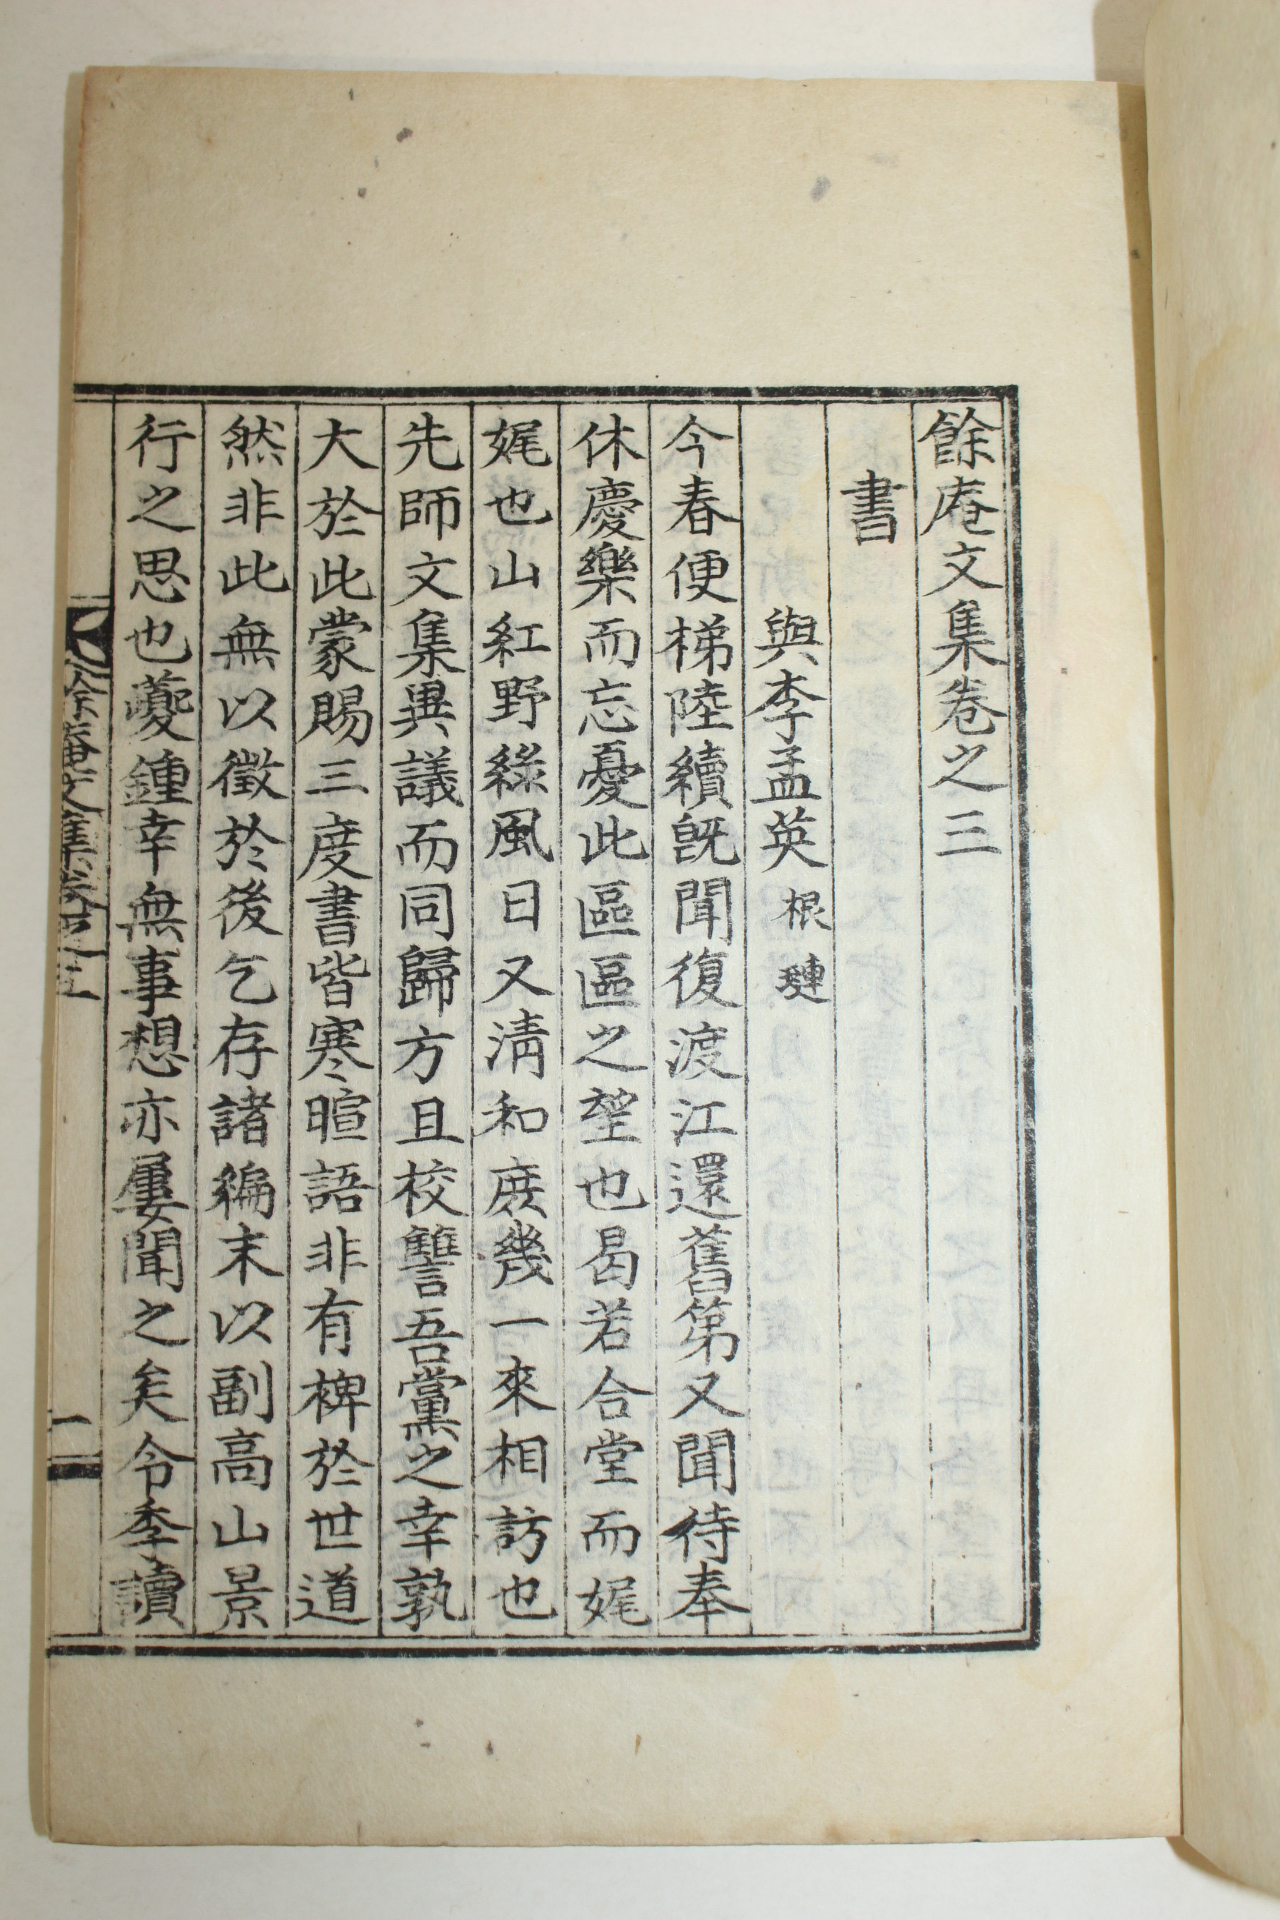 餘庵文集卷之三
書
與李孟英 根璉
今春便梯陸續旣聞復渡江還舊第又聞侍奉
休慶樂而忘憂此區區之望也曷若合堂而娓
娓也山紅野綠風日又淸和庶幾一來相訪也
先師文集異議而同歸方且校讐吾黨之幸孰
大於此蒙賜三度書皆寒暄語非有裨於世道
然非此無以徵於後乞存諸編末以副高山景
行之思也夔鍾幸無事想亦屢聞之矣令季讀
餘庵文集卷之三
一